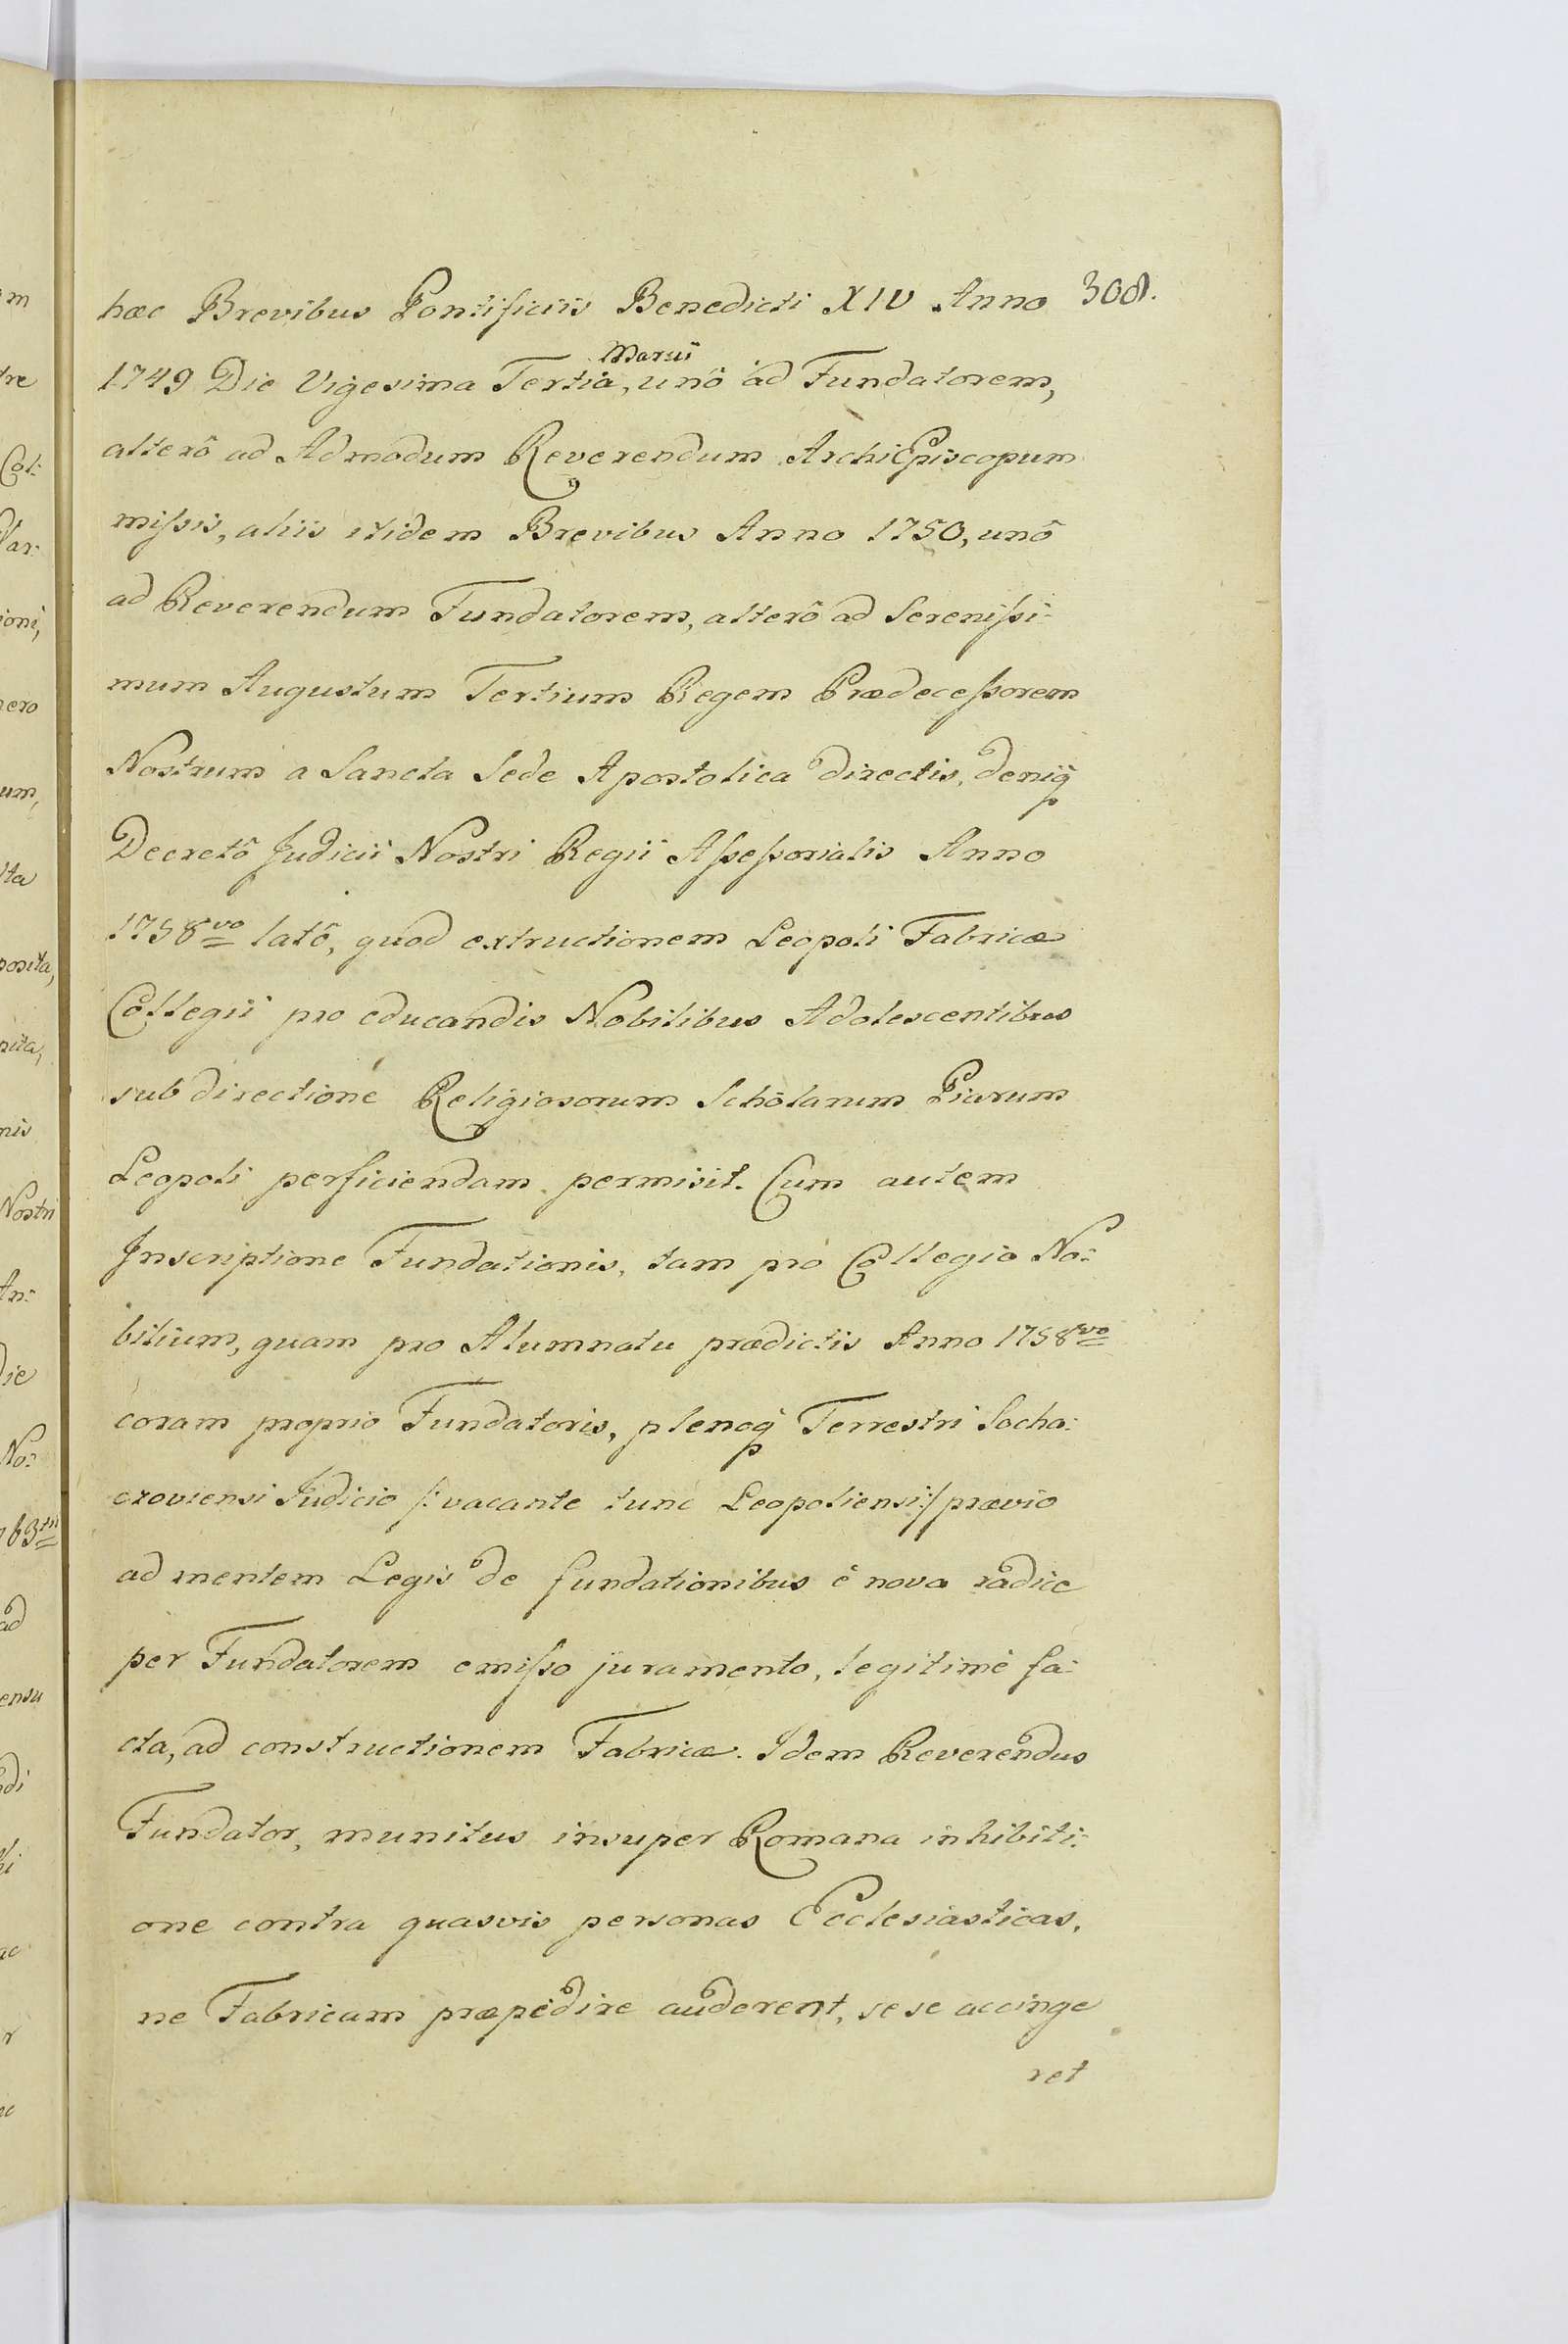 hæc Brevibus Pontificiis Benedicti XIV Anno 308.
Martii
1749 Die Vigesima Tertia, unô ad Fundatorem,
alterô ad Admodum Reverendum ArchiEpiscopum
missis, aliis itidem Brevibus Anno 1750, unô
ad Reverendum Fundatorem, alterô ad Serenissi-
mum Augustum Tertium Regem Prædecessorem
Nostrum a Sancta Sede Apostolica directis, deniq
Decretô Judicii Nostri Regii Assessorialis Anno
1758vo latô, quod extructionem Leopoli Fabricæ
Collegii pro educandis Nobilibus Adolescentibus
sub directione Religiosorum Scholarum Piarum
Leopoli perficiendam permisit. Cum autem
Inscriptione Fundationis, tam pro Collegio No-
bilium, quam pro Alumnatu prædictis Anno 1758vo
coram proprio Fundatoris, plenoq Terrestri Socha-
czoviensi Judicio /: vacante tunc Leopoliensi :/ prævio
ad mentem Legis de fundationibus è nova radice
per Fundatorem emisso juramento, legitimè fa-
cta, ad constructionem Fabricæ. Idem Reverendus
Fundator, munitus insuper Romana inhibiti-
one contra quasvis personas Ecclesiasticas,
ne Fabricam præpedire auderent, sese accinge
ret